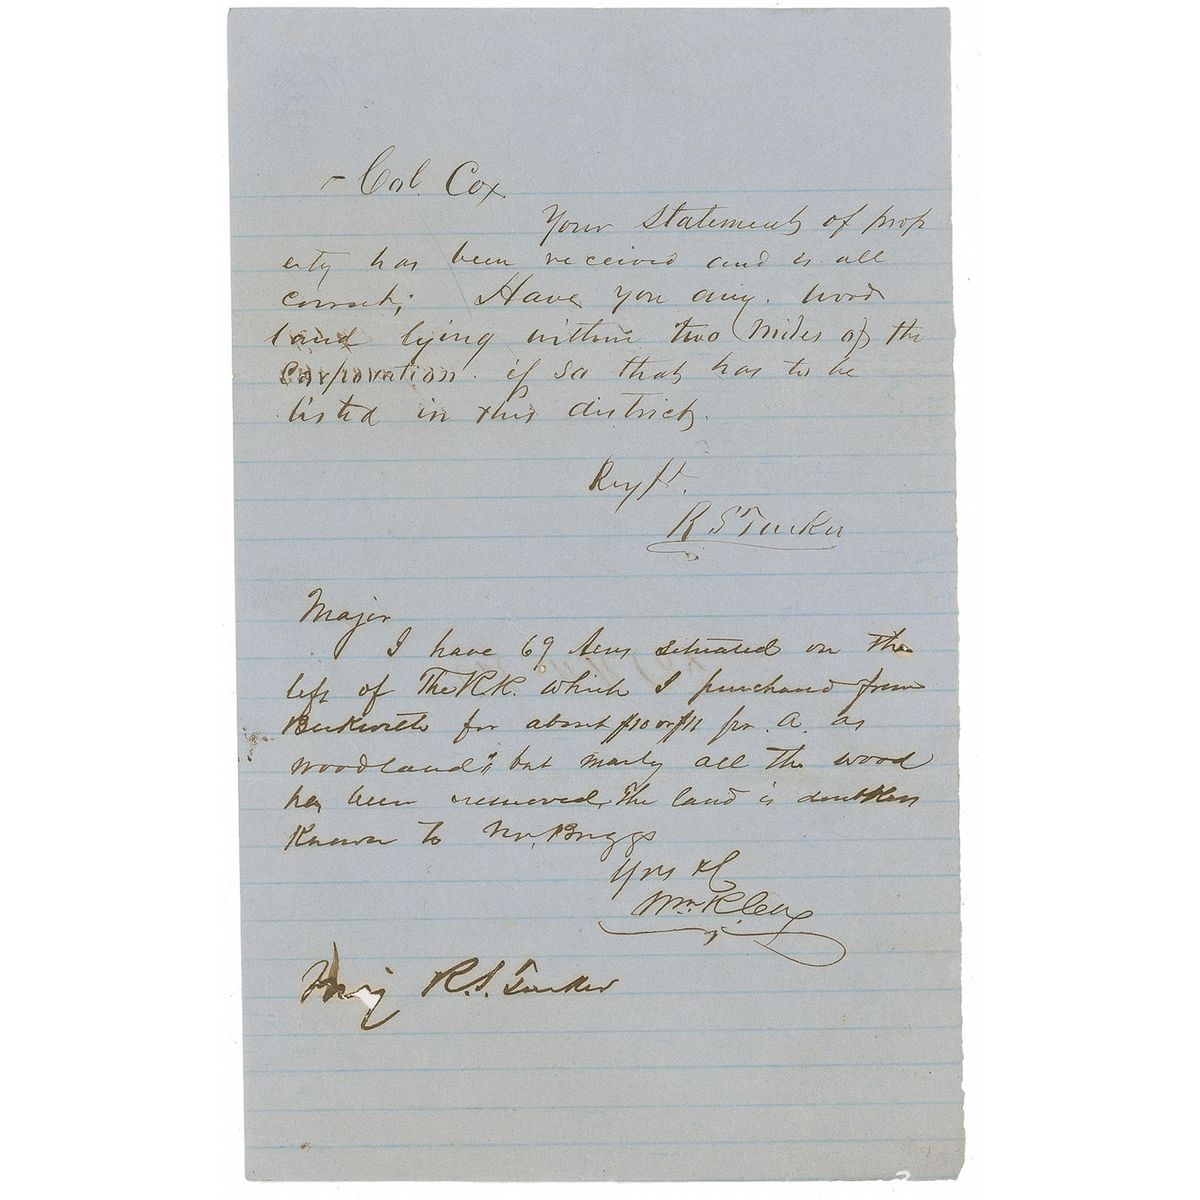 Col. Cox.
Your Statements of prop
erty has been received and is all
correct; Have you any wood
land lying within two miles of the
Corporation. if so that has to be
listed in this district.
R S Tucker
Major
I have 69 Acres situated on the
left of The RR. which I purchased from
Beckwith for about $10 or $11 pr. A. as
woodland; but nearly all the wood
has been removed, The land is doubtless
known to Mr. Briggs
Yrs &c
Wm. R. Cox
Maj R. S. Tucker